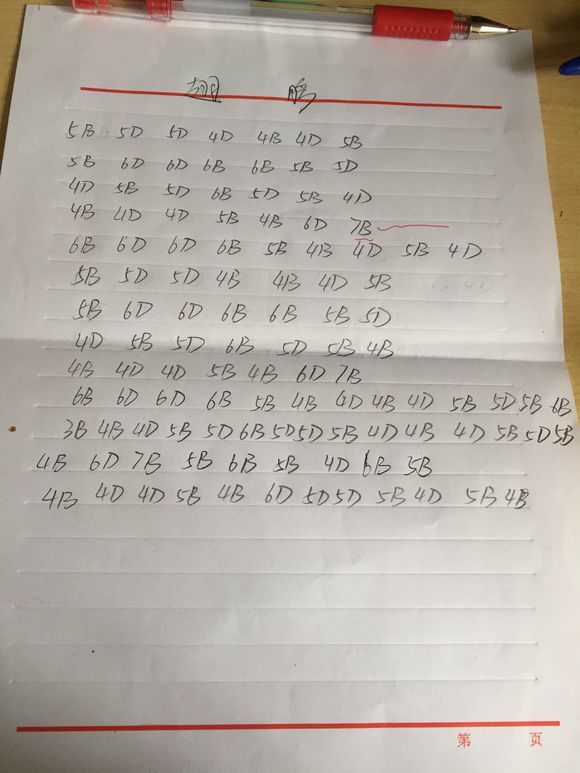 翅膀
5B 5D 5D 4D 4B 4D 5B
5B 6D 6D 6B 6B 5B 5D
4D 5B 5D 6B 5D 5B 4D
4B 4D 4D 5B 4B 6D 7B
6B 6D 6D 6B 5B 4B 4D 5B 4D
5B 5D 5D 4B 4B 4D 5B
5B 6D 6D 6B 6B 5B 5D
4D 5B 5D 6B 5D 5B 4B
4B 4D 4D 5B 4B 6D 7B
6B 6D 6D 6B 5B 4B 4D 4B 4D 5B 5D 5B 6B
3B 4B 4D 5B 5D 6B 5D 5D 5B 4D 4B 4D 5B 5D 5B
4B 6D 7B 5B 6B 5B 4D 6B 5B
4B 4D 4D 5B 4B 6D 5D 5D 5B 4D 5B 4B
第 页